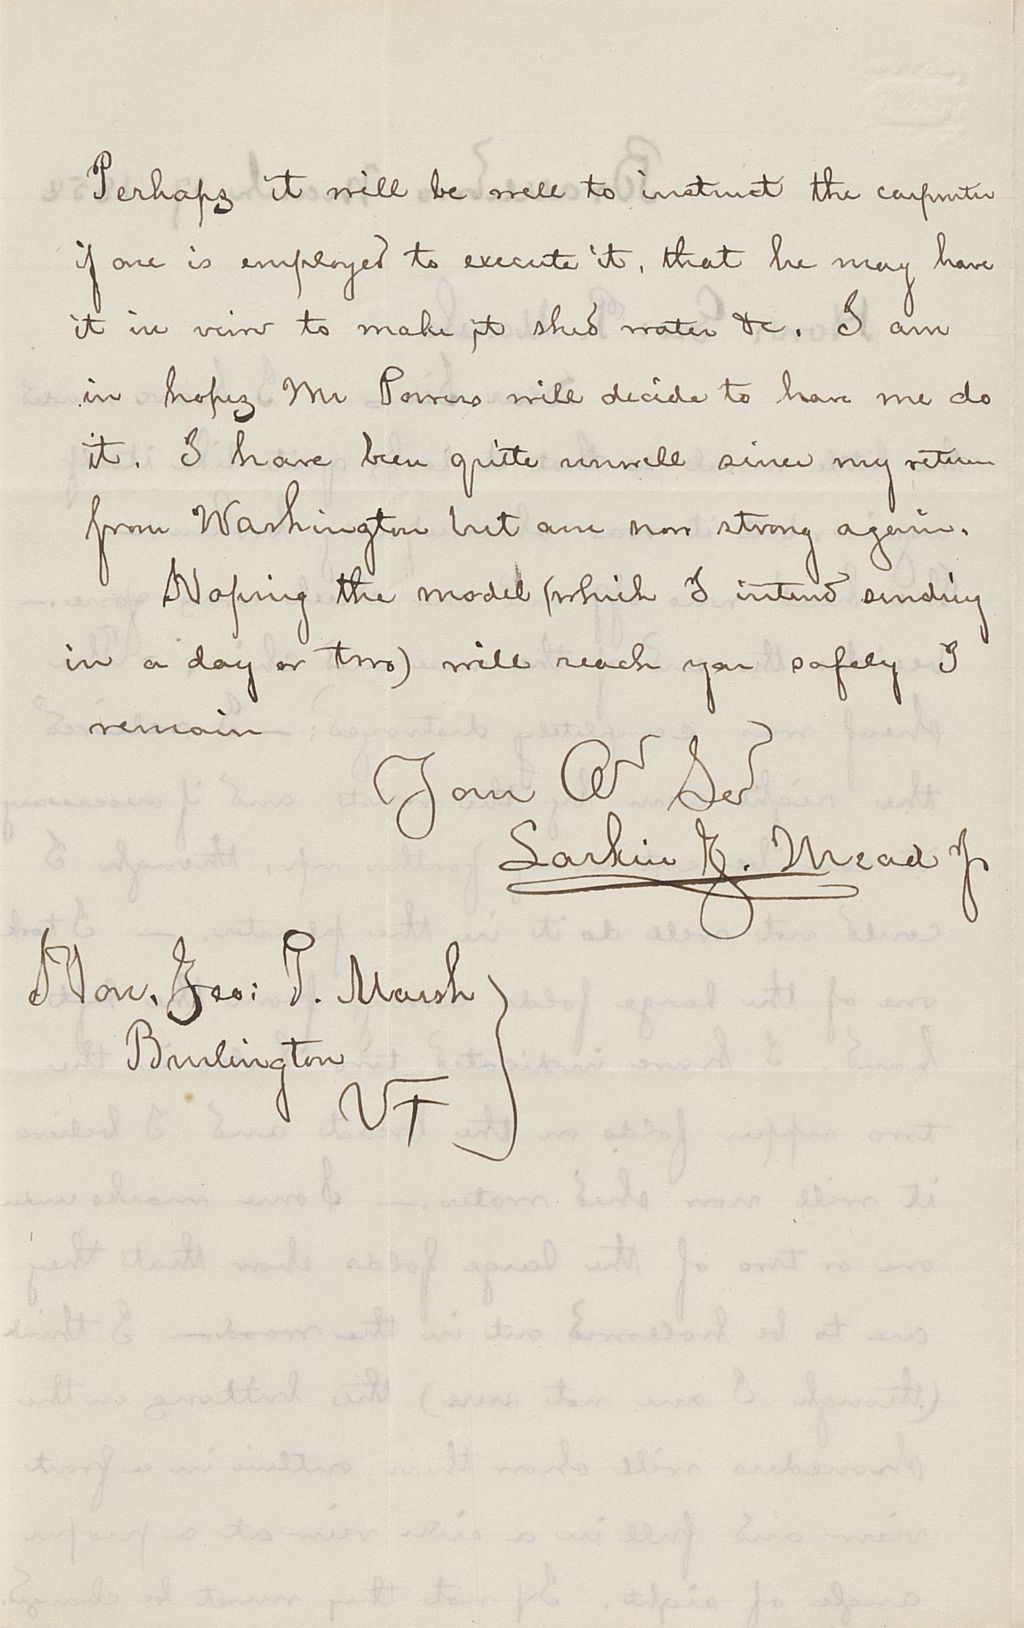 Perhaps it will be well to instruct the carpenter
if one is employed to execute it, that he may have
it in view to make it shed water &c. I am
in hopes Mr Powers will decide to have me do
it. I have been quite unwell since my return
from Washington but am now strong again.
Hoping the model (which I intend sending
in a day or two) will reach you safely I
remain
Your Ob Sev
Larkin G. Mead Jr
Hon. Geo: P. Marsh
Burlington
VT